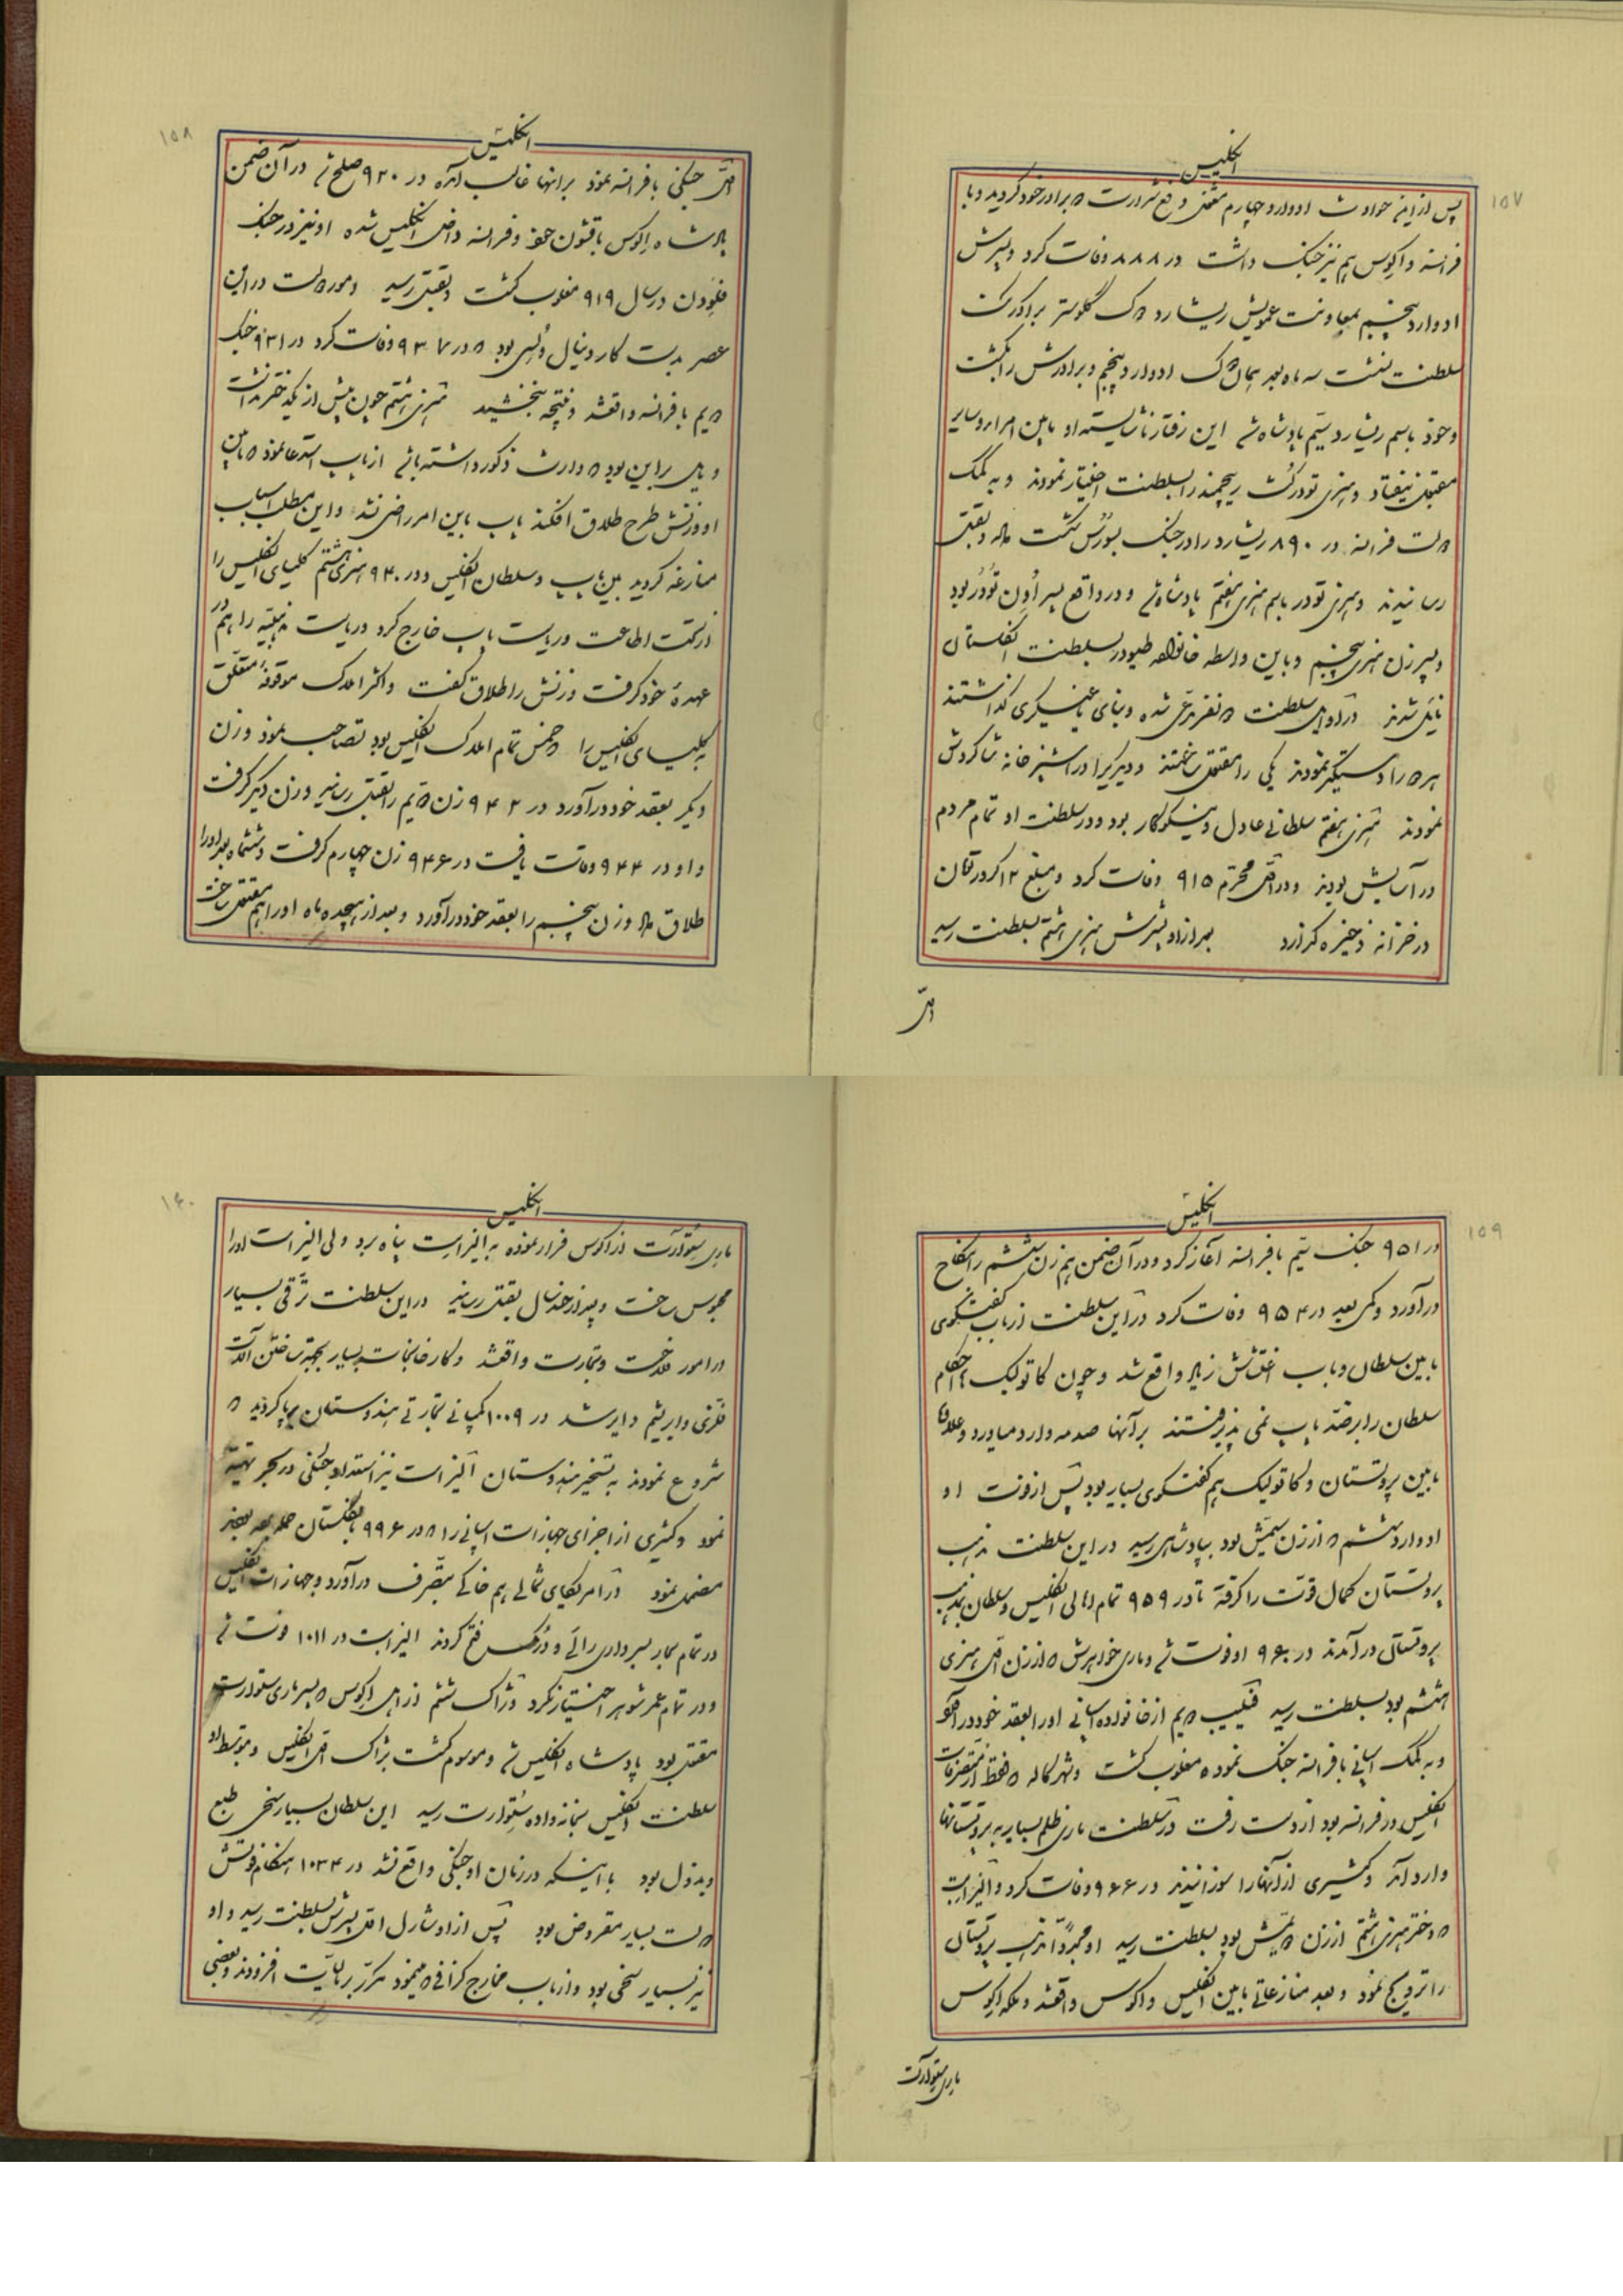 ۱۵۷
انگلیس
پس از این حوادث ادوارد چهارم برادر خود گردید و با
فرانسه و اکوس هم نیز جنگ داشت در ۸۸۸ وفات کرد و پسرش
ادوارد پنجم بمعاونت عمویش ریشارد دوک گلوستر بر اورکت
سلطنت نشست سه ماه بعد همان دوک ادوارد پنجم و برادرش را بکشت
و خود باسم ریشارد سیم پادشاه شد این رفتار ناشایسته او مابین امرا و سایر
مقبول نیفتاد و هنری تودر کنت ریچمند را بسلطنت اختیار نمودند و به کمک
دولت فرانسه در ۸۹۰ ریشارد را در جنگ بسورس شکست داده بقتل
رسانیدند و هنری تودر باسم هنری هفتم پادشاه شد و در واقع پسر اون تودر بود
و پسر زن هنری پنجم و باین واسطه خانواده طیودر بسلطنت انگلستان
نایل شدند در اوایل سلطنت دو نفر مدعی شده و بنای یاغیگری گذاشتند
هر دو را دستگیر نمودند یکی را مقتول ساختند و دیگری را در آشپزخانه شاگردش
نمودند هنری هفتم سلطانی عادل و نیکوکار بود و در سلطنت او تمام مردم
در آسایش بودند و در اول محرم ۹۱۵ وفات کرد و مبلغ ۱۲ کرور تومان
در خزانه ذخیره گذارد بعد از او پسرش هنری هشتم بسلطنت رسید
اول
۱۵۸
انگلیس
اول جنگی با فرانسه نمود بر آنها غالب آمده در ۹۲۰ صلح شد در آن ضمن
پادشاه اکوس با قشون خود و فرانسه داخل انگلیس شده او نیز در جنگ
فلودن در سال ۹۱۹ مغلوب گشت و بقتل رسید و امور دولت در این
عصر بدست کاردینال ولسی بود که در ۹۳۷ وفات کرد در ۹۳۱ جنگ
دویم با فرانسه واقع شد و نتیجه نبخشید هنری هشتم چون بیش از یک دختر نداشت
و میل بر این بود که وارث ذکور داشته باشد از پاپ استدعا نمود که مابین
او و زنش طرح طلاق افکند پاپ باین امر راضی نشد و این مطلب اسباب
منازعه گردید بین پاپ و سلطان انگلیس و در ۹۴۰ هنری هشتم کلیسای انگلیس را
از تحت اطاعت و ریاست پاپ خارج کرد و ریاست مذهبیه را هم در
عهدهٔ خود گرفت و زنش را طلاق گفت و اکثر املاک موقوفهٔ متعلق
به کلیسای انگلیس را که خمس تمام املاک انگلیس بود تصاحب نمود و زن
دیگر بعقد خود درآورد در ۹۴۲ زن دویم را بقتل رسانید و زن دیگر گرفت
و او در ۹۴۴ وفات یافت در ۹۴۶ زن چهارم گرفت و ششماه بعد او را
طلاق داد و زن پنجم را بعقد خود درآورد و بعد از هیجده ماه او را هم مقتول ساخت
۱۵۹
انگلیس
در ۹۵۱ جنگ سیم با فرانسه آغاز کرد و در آن ضمن هم زن ششم را بنکاح
درآورد و کمی بعد در ۹۵۴ وفات کرد در این سلطنت از باب گفتگوی
مابین سلطان و پاپ اغتشاش زیاد واقع شد و چون کاتولیک ها احکام
سلطان را بر ضد پاپ نمی پذیرفتند بر آنها صدمه وارد میاورد و علاوه
مابین پروتستان و کاتولیک هم گفتگوی بسیار بود پس از فوت او
ادوارد ششم که از زن سیمش بود بپادشاهی رسید در این سلطنت مذهب
پروتستان کمال قوت را گرفته تا در ۹۵۹ تمام اهالی انگلیس و سلطان بمذهب
پروتستانی درآمدند در ۹۶۰ او فوت شد و ماری خواهرش که از زن اول هنری
هشتم بود بسلطنت رسید فیلیپ دویم از خانواده اسپانی او را بعقد خود درآورد
و به کمک اسپانی با فرانسه جنگ نموده مغلوب گشت و شهر کاله که فقط از متصرفات
انگلیس در فرانسه بود از دست رفت در سلطنت ماری ظلم بسیار به پروتستانها
وارد آمد و کثیری از آنها را سوزانیدند در ۹۶۶ وفات کرد و الیزابت
که دختر هنری هشتم از زن دویمش بود بسلطنت رسید او مجدداً مذهب پروتستان
را ترویج نمود و بعد منازعاتی مابین انگلیس و اکوس واقع شد و ملکه اکوس
ماری ستوارت
۱۶۰
انگلیس
ماری ستوارت از اکوس فرار نموده به الیزابت پناه برد ولی الیزابت او را
محبوس ساخت و بعد از چند سال بقتل رسانید در این سلطنت ترقی بسیار
در امور فلاحت و تجارت واقع شد و کارخانجات بسیار بجهت ساختن آلات
فلزی و ابریشم دایر شد در ۱۰۰۹ کمپانی تجارتی هندوستان برپا گردید که
شروع نمودند به تسخیر هندوستان الیزابت نیز استعداد جنگی در بحر تهیه
نمود و کثیری از اجزای جهازات اسپانی را که در ۹۹۶ بانگلستان حمله
مضمحل نمود در امریکای شمالی هم خاکی بتصرف درآورد و جهازات انگلیس
در تمام بحار بسرداری رالی و درک فتح کردند الیزابت در ۱۰۱۱ فوت شد
و در تمام عمر شوهر اختیار نکرد و ژاک ششم از اهل اکوس که پسر ماری ستوارت
مقتول بود پادشاه انگلیس شد و موسوم گشت بژاک اول انگلیس و بتوسط او
سلطنت انگلیس بخانواده ستوارت رسید این سلطان بسیار سخی طبع
و بذول بود با اینکه در زمان او جنگی واقع نشد در ۱۰۳۴ هنگام فوتش
دولت بسیار مقروض بود پس از او شارل اول پسرش بسلطنت رسید و او
نیز بسیار سخی بود و از باب مخارج گزافی که مینمود مکرر بر مالیات افزودند و بعضی